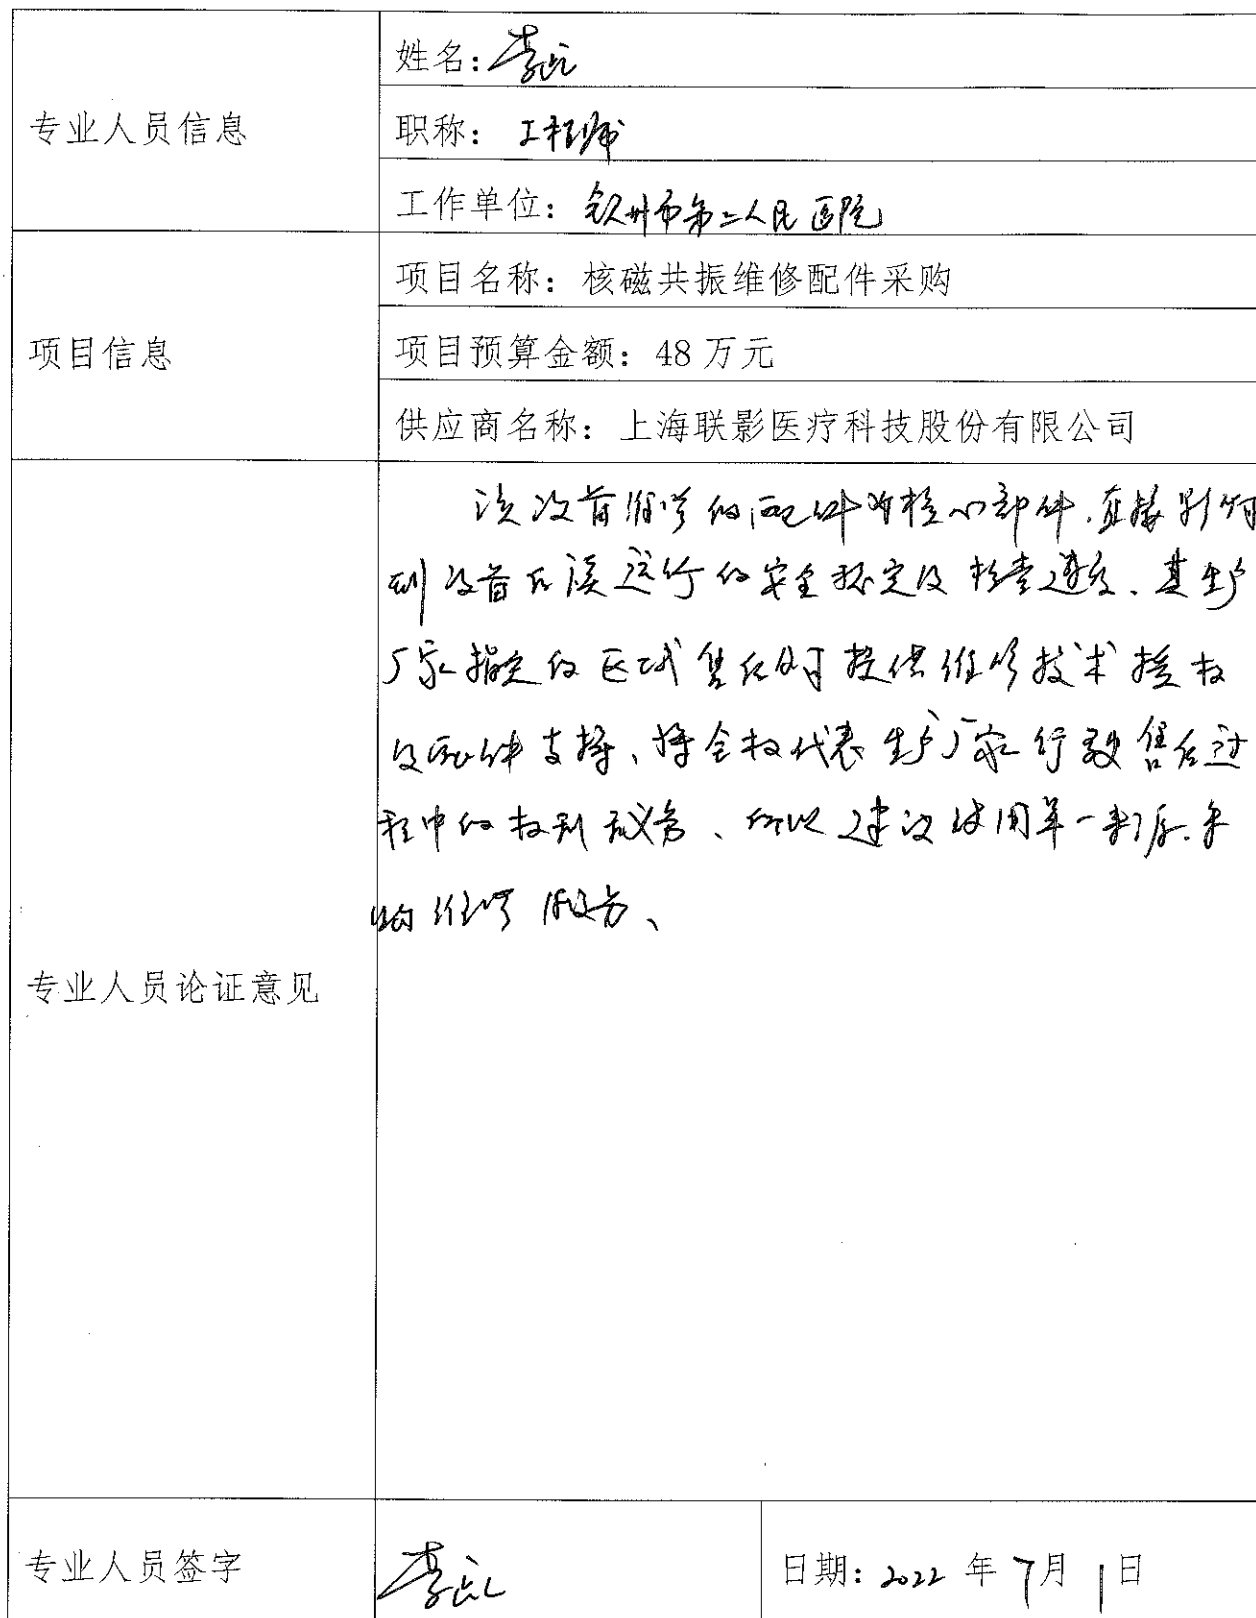 专业人员信息
姓名:李
职称: 工程师
工作单位: 钦州市第二人民医院
项目信息
项目名称: 核磁共振维修配件采购
项目预算金额: 48 万元
供应商名称: 上海联影医疗科技股份有限公司
专业人员论证意见
该设备维修的配件为核心部件,直接影响
到设备后续运行的安全稳定及检查进度、其生产
厂家指定的区域售后 提供维修技术授权
及配件支持、将全权代表生产厂家行政售后过
程中的权利义务、所以建议使用单一来源采
购维修服务、
专业人员签字
李
日期: 2022 年 7月 1日